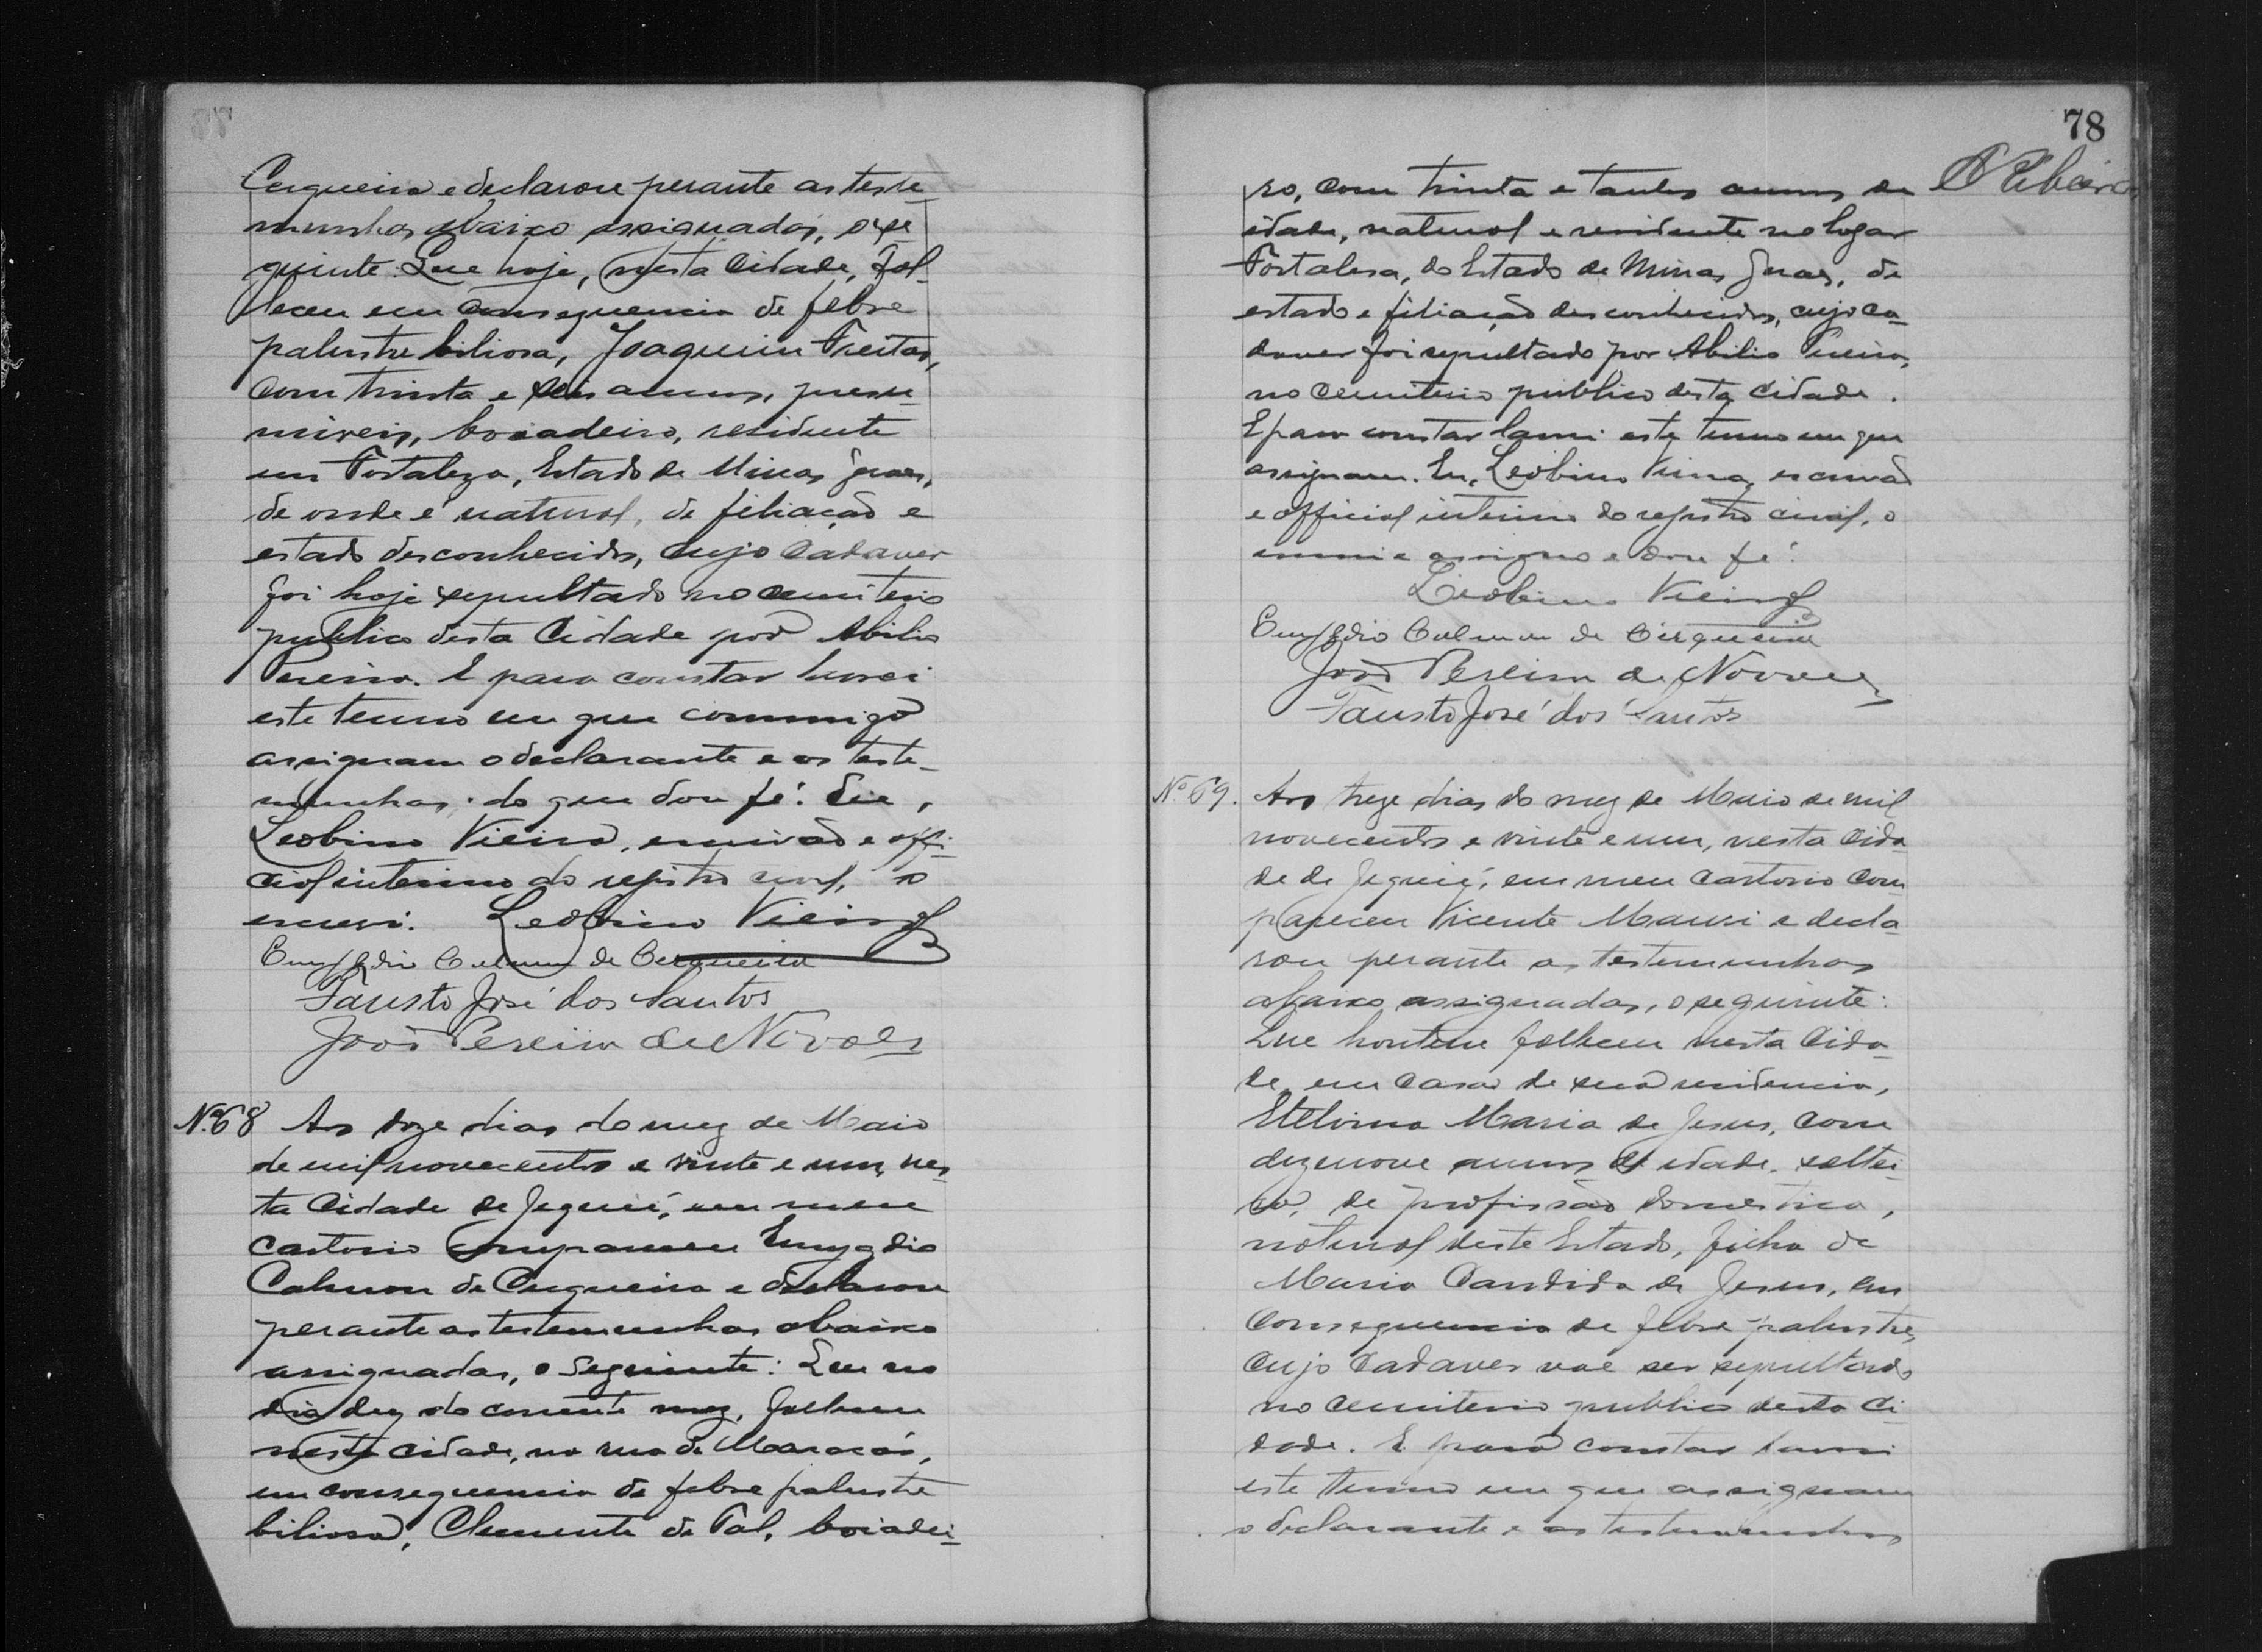 Cerqueira e declarou perante as teste-
munhas abaixo assignadas, o se-
guinte: Que hoje, nesta Cidade, fal-
leceu em consequencia de febre
palustre biliosa, Joaquim Freitas,
com trinta e seis annos, presu-
miveis, boiadeiro, residente
em Fortaleza, Estado de Minas Geraes,
de onde é natural, de filiação e
estado desconhecidos, cujo cadaver
foi hoje sepultado no cemiterio
publico desta Cidade por Abilio
Pereira. E para constar lavrei
este termo em que commigo
assignam o declarante e as teste-
munhas; do que dou fé. Eu,
Leobino Vieira, escrivão e offi-
cial interino do registro civil, o
escrevi. Leobino Vieira
Emygdio Calmon de Cerqueira
Fausto José dos Santos
João Pereira de Novaes
Nº 68 Aos doze dias do mez de Maio
de mil novecentos e vinte e um, nes-
ta Cidade de Jequié, em meu
Cartorio compareceu Emygdio
Calmon de Cerqueira e declarou
perante as testemunhas abaixo
assignadas, o seguinte: Que no
dia dez do corrente mez, falleceu
nesta cidade, na rua de Maracás,
em consequencia de febre palustre
biliosa, Clemente de Tal, boiadei-
78
ro, com trinta e tantos annos de
idade, natural e residente no logar
Fortalesa, do Estado de Minas Geraes, de
estado e filiação desconhecidos, cujo ca-
daver foi sepultado por Abilio Pereira,
no cemiterio publico desta cidade.
E para constar lavrei este termo em que
assignam. Eu, Leobino Vieira, escrivão
e official interino do registro civil, o
escrevi e assigno e dou fé.
Leobino Vieira
Emygdio Calmon de Cerqueira
João Pereira de Novaes
Fausto José dos Santos
Nº 69. Aos treze dias do mez de Maio de mil
novecentos e vinte e um, nesta Cida-
de de Jequié, em meu Cartorio com-
pareceu Vicente Mauri e decla-
rou perante as testemunhas
abaixo assignadas, o seguinte:
Que hontem falleceu nesta Cida-
de, em casa de sua residencia,
Etelvina Maria de Jesus, com
dezenove annos de idade, soltei-
ra, de profissão domestica,
natural deste Estado, filha de
Maria Candida de Jesus, em
consequencia de febre palustre,
cujo cadaver vae ser sepultado
no cemiterio publico desta ci-
dade. E para constar lavrei
este termo em que assignam
o declarante e as testemunhas